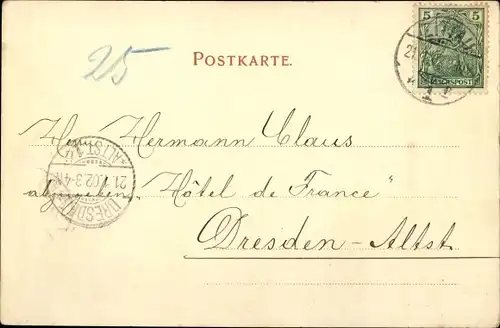 25
POSTKARTE.
5 5
REICHSPOST
ZITTAU
21.
Herrn Hermann Claus
abzugeben „Hôtel de France"
Dresden-Altst.
DRESDEN ALTST.
21.1.02.3-4N